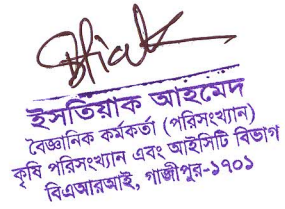 ইসতিয়াক আহমেদ
বৈজ্ঞানিক কর্মকর্তা (পরিসংখ্যান)
কৃষি পরিসংখ্যান এবং আইসিটি বিভাগ
বিএআরআই, গাজীপুর-১৭০১